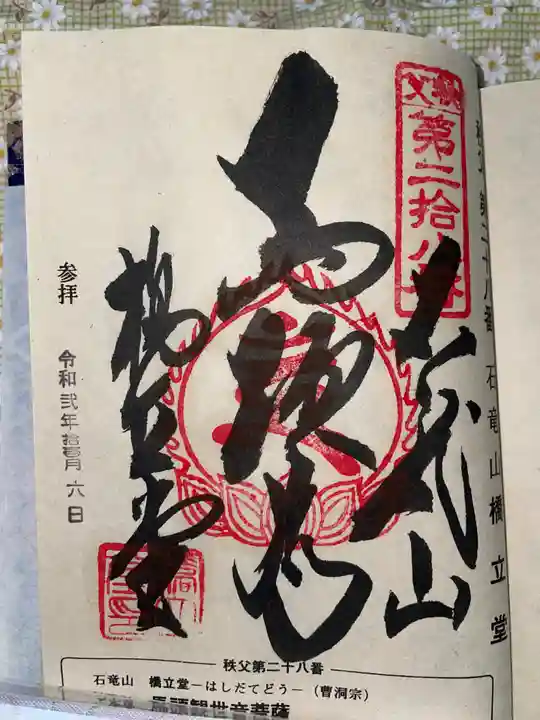 秩父
第二拾八番
石竜山
馬頭尊
橋立堂
参拝 令和弐年拾壹月六日
秩父第二十八番 石竜山橋立堂
秩父第二十八番
石竜山 橋立堂―はしだてどう―(曹洞宗)
馬頭観世音菩薩